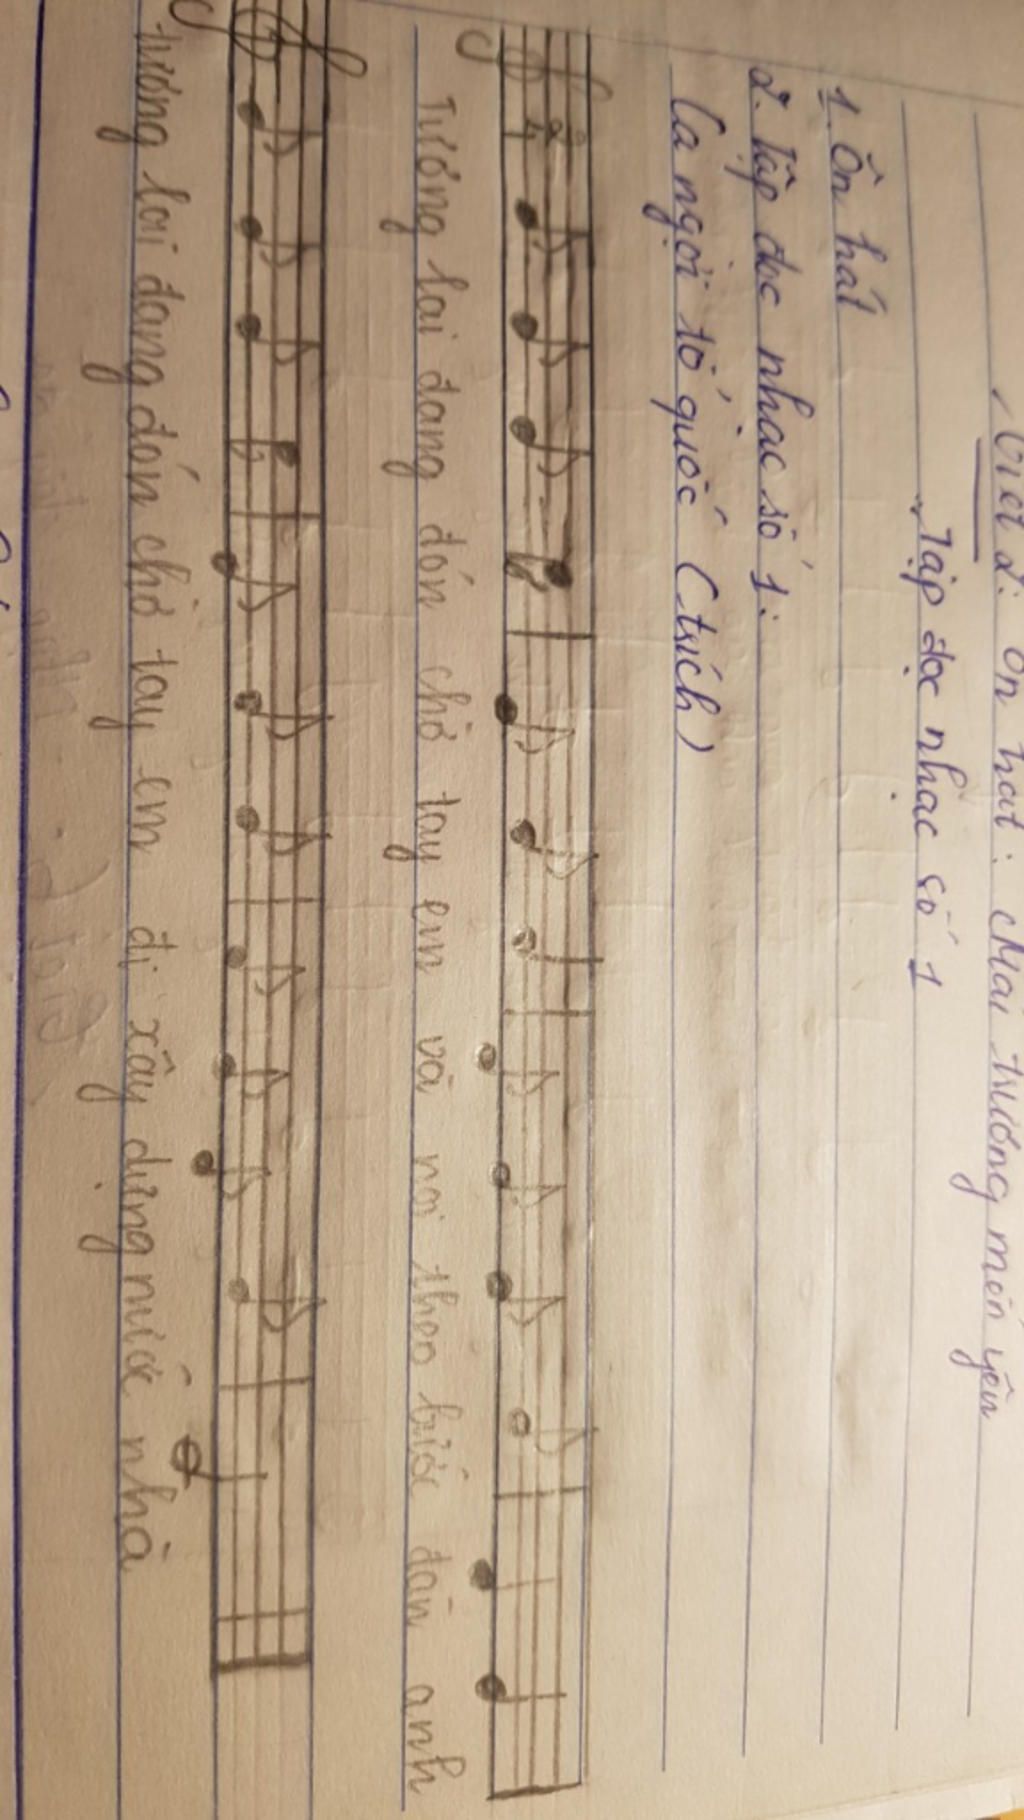 Tiết 2: Ôn hát: Mái trường mến yêu
Tập đọc nhạc số 1
1. Ôn hát
2. Tập đọc nhạc số 1:
Ca ngợi tổ quốc (trích)
2
4
Tương lai đang đón chờ tay em và nơi theo bước đàn anh
tương lai đang đón chờ tay em đi xây dựng nước nhà